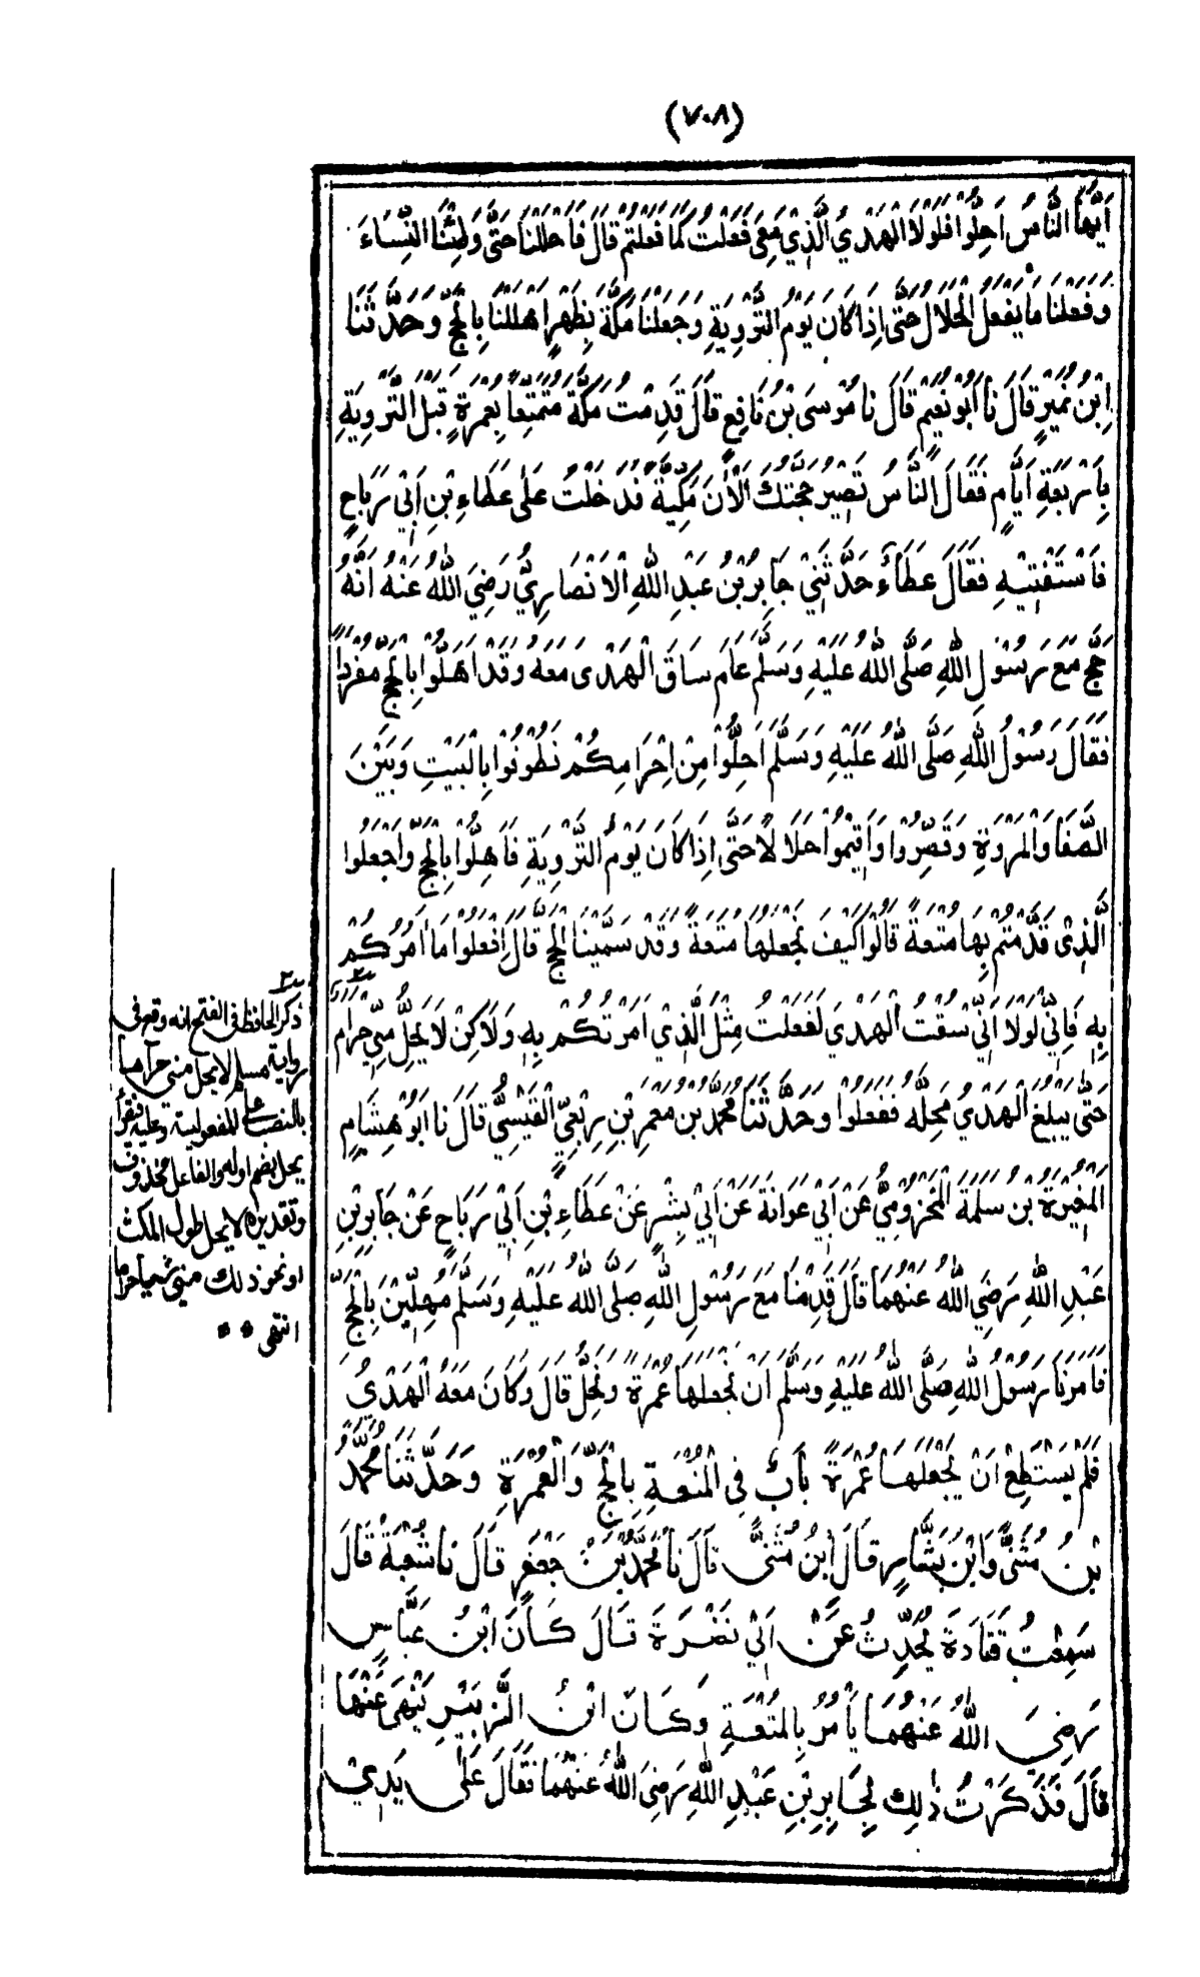 (٧٠٨)
اَيُّهَا النَّاسُ اَحِلُّوْا فَلَوْلَا الْهَدْيُ الَّذِيْ مَعِيَ فَعَلْتُ كَمَا فَعَلْتُمْ قَالَ فَاَحْلَلْنَا حَتّٰى وَطِئْنَا النِّسَاءَ
وَفَعَلْنَا مَا يَفْعَلُ الْحَلَالُ حَتّٰى اِذَا كَانَ يَوْمُ التَّرْوِيَةِ وَجَعَلْنَا مَكَّةَ بِظَهْرٍ اَهْلَلْنَا بِالْحَجِّ وَحَدَّثَنَا
اِبْنُ نُمَيْرٍ قَالَ نَا اَبُوْ نُعَيْمٍ قَالَ نَا مُوْسَى بْنُ نَافِعٍ قَالَ قَدِمْتُ مَكَّةَ مُتَمَتِّعًا بِعُمْرَةٍ قَبْلَ التَّرْوِيَةِ
بِاَرْبَعَةِ اَيَّامٍ فَقَالَ النَّاسُ تَصِيْرُ حَجَّتُكَ الْاٰنَ مَكِّيَّةً فَدَخَلْتُ عَلٰى عَطَاءِ بْنِ اَبِيْ رَبَاحٍ
فَاسْتَفْتَيْتُهِ فَقَالَ عَطَآءٌ حَدَّثَنِيْ جَابِرُ بْنُ عَبْدِ اللّٰهِ الْاَنْصَارِيُّ رَضِيَ اللّٰهُ عَنْهُ اَنَّهُ
حَجَّ مَعَ رَسُوْلِ اللّٰهِ صَلَّى اللّٰهُ عَلَيْهِ وَسَلَّمَ عَامَ سَاقَ الْهَدْىَ مَعَهُ وَقَدْ اَهَلُّوْا بِالْحَجِّ مُفْرَدًا
فَقَالَ رَسُوْلُ اللّٰهِ صَلَّى اللّٰهُ عَلَيْهِ وَسَلَّمَ اَحِلُّوْا مِنْ اِحْرَامِكُمْ فَطُوْفُوْا بِالْبَيْتِ وَبَيْنَ
الصَّفَا وَالْمَرْوَةِ وَقَصِّرُوْا وَاَقِيْمُوْا حَلَالًا حَتّٰى اِذَا كَانَ يَوْمُ التَّرْوِيَةِ فَاَهِلُّوْا بِالْحَجِّ وَاجْعَلُوا
الَّذِىْ قَدَّمْتُمْ بِهَا مُتْعَةً قَالُوْا كَيْفَ نَجْعَلُهَا مُتْعَةً وَقَدْ سَمَّيْنَا الْحَجَّ قَالَ اِفْعَلُوْا مَا اٰمُرُكُمْ
بِهٖ فَاِنِّيْ لَوْلَا اَنِّيْ سُقْتُ الْهَدْيَ لَفَعَلْتُ مِثْلَ الَّذِيْ اَمَرْتُكُمْ بِهٖ وَلَاكِنْ لَا يَحِلُّ مِنِّيْ حَرَامٌ
حَتّٰى يَبْلُغَ الْهَدْيُ مَحِلَّهُ فَفَعَلُوْا وَحَدَّثَنَا مُحَمَّدُ بْنُ مَعْمَرِ بْنِ رِبْعِيٍّ الْقَيْسِيُّ قَالَ نَا اَبُوْ هِشَامٍ
الْمُغِيْرَةُ بْنُ سَلَمَةَ الْمَخْزُوْمِيُّ عَنْ اَبِيْ عَوَانَةَ عَنْ اَبِيْ بِشْرٍ عَنْ عَطَاءِ بْنِ اَبِيْ رَبَاحٍ عَنْ جَابِرِ بْنِ
عَبْدِ اللّٰهِ رَضِيَ اللّٰهُ عَنْهُمَا قَالَ قَدِمْنَا مَعَ رَسُوْلِ اللّٰهِ صَلَّى اللّٰهُ عَلَيْهِ وَسَلَّمَ مُهِلِّيْنَ بِالْحَجِّ
فَاَمَرَنَا رَسُوْلُ اللّٰهِ صَلَّى اللّٰهُ عَلَيْهِ وَسَلَّمَ اَنْ نَجْعَلَهَا عُمْرَةً وَنَحِلَّ قَالَ وَكَانَ مَعَهُ الْهَدْىُ
فَلَمْ يَسْتَطِعْ اَنْ يَجْعَلَهَا عُمْرَةً بَابٌ فِي الْمُتْعَةِ بِالْحَجِّ وَالْعُمْرَةِ وَحَدَّثَنَا مُحَمَّدُ
بْنُ مُثَنًّى وَابْنُ بَشَّارٍ قَالَ ابْنُ مُثَنًّى قَالَ نَا مُحَمَّدُ بْنُ جَعْفَرٍ قَالَ نَا شُعْبَةُ قَالَ
سَمِعْتُ قَتَادَةَ يُحَدِّثُ عَنْ اَبِيْ نَضْرَةَ قَالَ كَانَ ابْنُ عَبَّاسٍ
رَضِيَ اللّٰهُ عَنْهُمَا يَأْمُرُ بِالْمُتْعَةِ وَكَانَ ابْنُ الزُّبَيْرِ يَنْهَى عَنْهَا
قَالَ فَذَكَرْتُ ذٰلِكَ لِجَابِرِ بْنِ عَبْدِ اللّٰهِ رَضِيَ اللّٰهُ عَنْهُمَا فَقَالَ عَلٰى يَدِيْ
ذكر الحافظ فى الفتح انه وقع فى
رواية مسلم لا يحل منى حراما
بالنصب على المفعولية وعليه فيقرأ
يحل بضم اوله والفاعل محذوف
وتقديره لا يحل طول المكث
او نحو ذلك منى شيئا حراما
انتهى